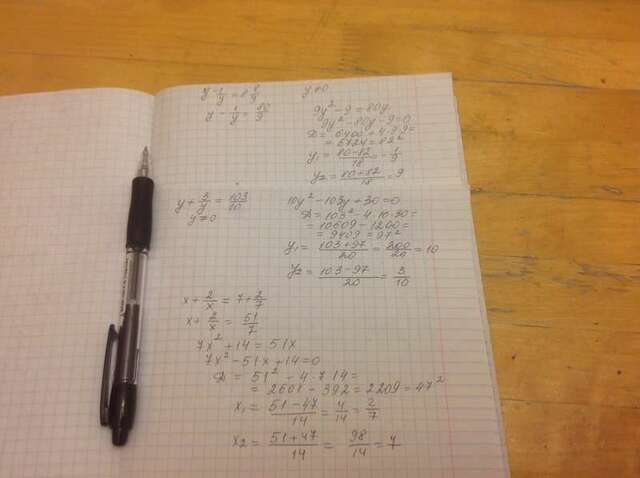 y - 1/y = 8 8/9
y ≠ 0
y - 1/y = 80/9
9y² - 9 = 80y
9y² - 80y - 9 = 0
D = 6400 + 4·9·9 =
= 6724 = 82²
y₁ = (80-82)/18 = -1/9
y₂ = (80+82)/18 = 9
y + 3/y = 103/10
y ≠ 0
10y² - 103y + 30 = 0
D = 103² - 4·10·30 =
= 10609 - 1200 =
= 9409 = 97²
y₁ = (103+97)/20 = 200/20 = 10
y₂ = (103-97)/20 = 3/10
x + 2/x = 7 + 2/7
x + 2/x = 51/7
7x² + 14 = 51x
7x² - 51x + 14 = 0
D = 51² - 4·7·14 =
= 2601 - 392 = 2209 = 47²
x₁ = (51-47)/14 = 4/14 = 2/7
x₂ = (51+47)/14 = 98/14 = 7